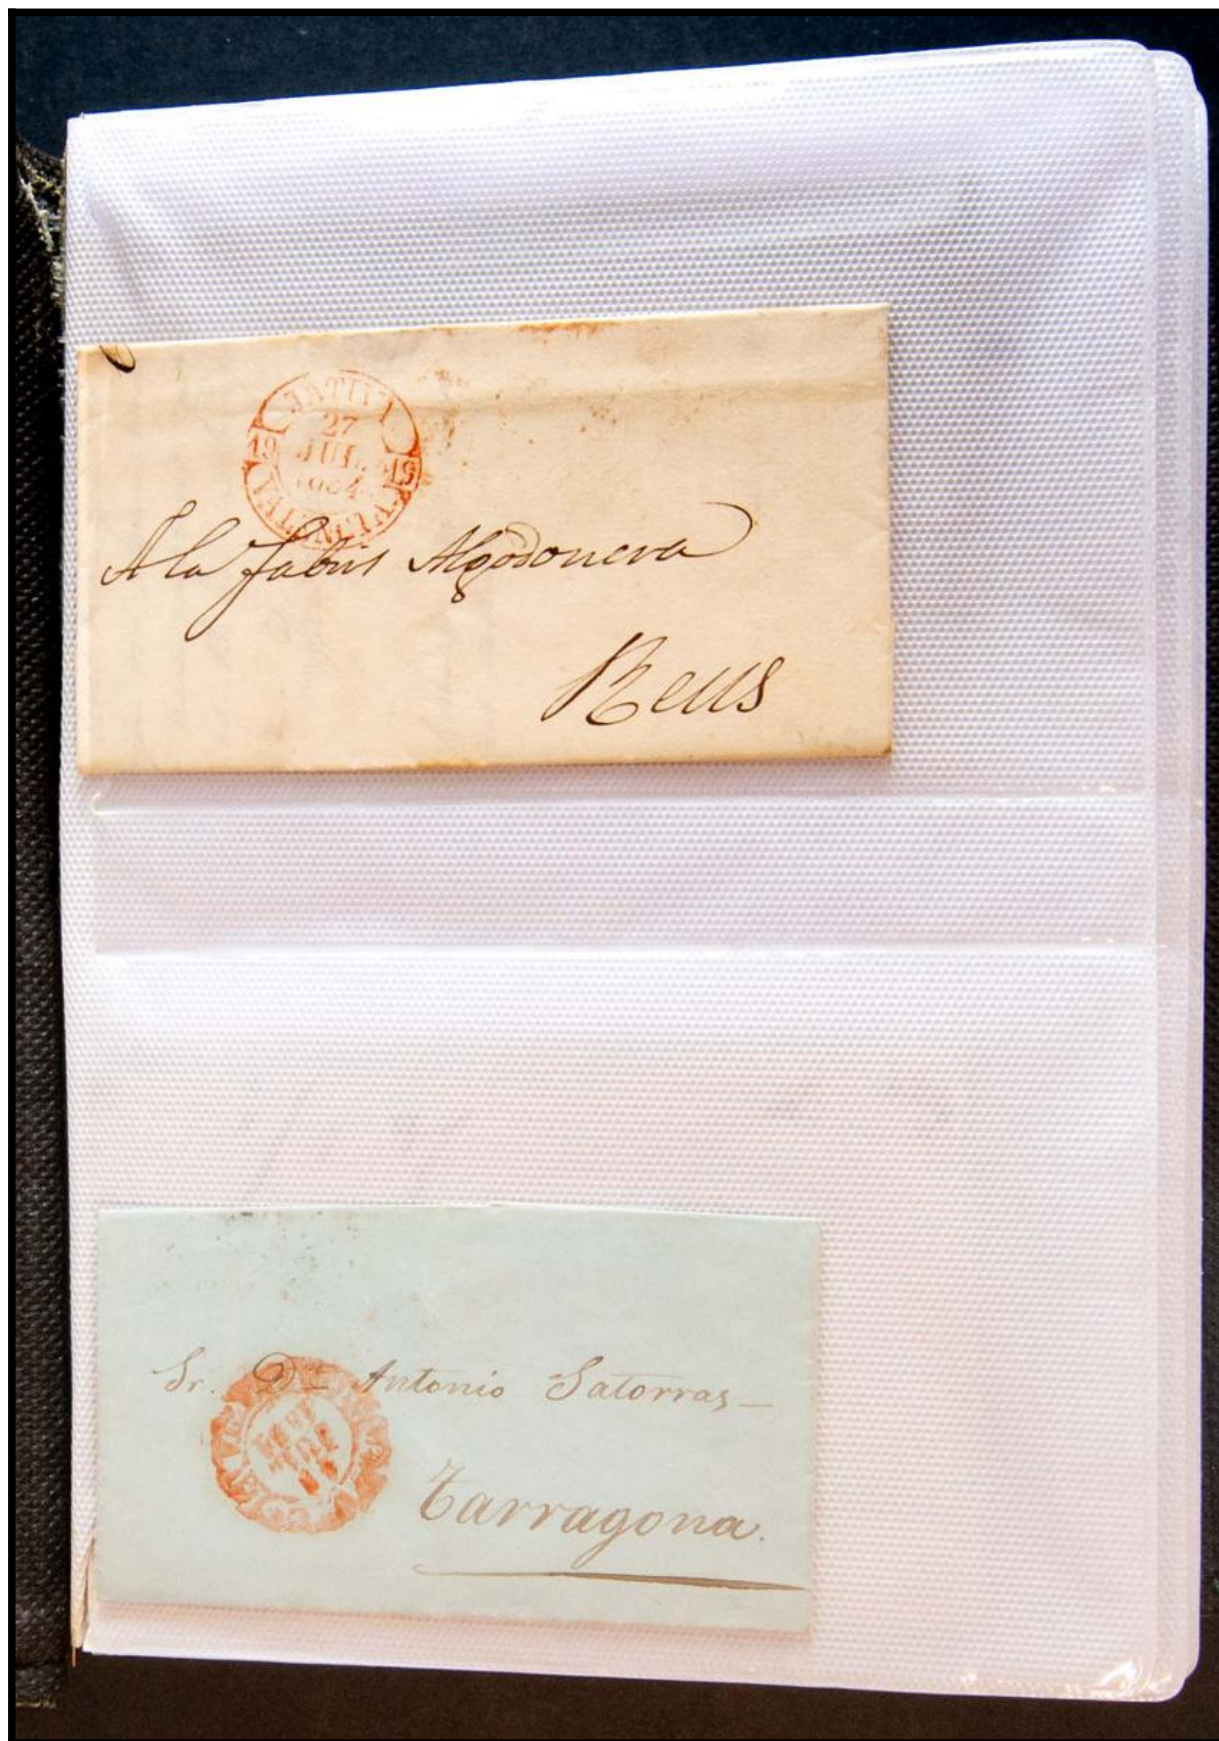 JATIVA
27
JUL.
1854
19 19
VALENCIA
A la fabril Algodonera
Reus
Sr. Dn Antonio Satorras -
Tarragona.